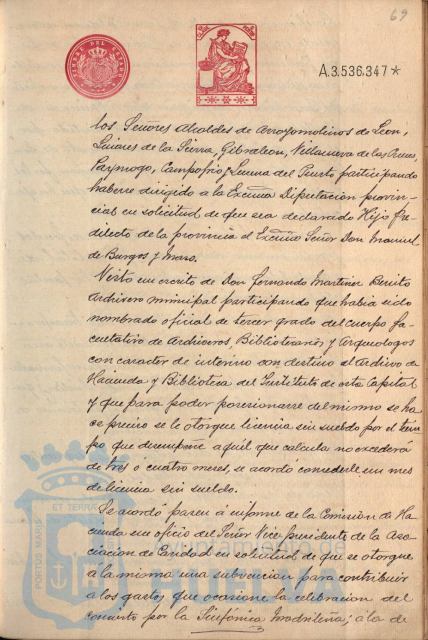 69
TIMBRE DEL ESTADO
A.3.536.347*
los Señores Alcaldes de Arroyomolinos de Leon,
Linares de la Sierra, Gibraleon, Villanueva de las Cruces,
Paymogo, Campofrio y Lucena del Puerto participando
haberse dirigido a la Excma Diputacion provin-
cial en solicitud de que sea declarado Hijo Pre-
dilecto de la provincia el Excmo Señor Don Manuel
de Burgos y Mazo.
Visto un escrito de Don Fernando Martinez Benito
Archivero municipal participando que habia sido
nombrado oficial de tercer grado del cuerpo fa-
cultativo de Archiveros, Bibliotecarios y Arqueologos
con caracter de interino con destino al Archivo de
Hacienda y Biblioteca del Instituto de esta Capital
y que para poder posesionarse del mismo se ha-
ce preciso se le otorgue licencia sin sueldo por el tiem-
po que desempeñe aquél que calcula no excederá
de tres ó cuatro meses, se acordó concederle un mes
de licencia sin sueldo.
Se acordó pasen á informe de la Comision de Ha-
cienda un oficio del Señor Vice-presidente de la Aso-
ciacion de Caridad en solicitud de que se otorgue
á la misma una subvencion para contribuir
a los gastos que ocasione la celebracion del
concierto por la Sinfónica Madrileña; á la de
PORTUS MARIS ET TERRAE